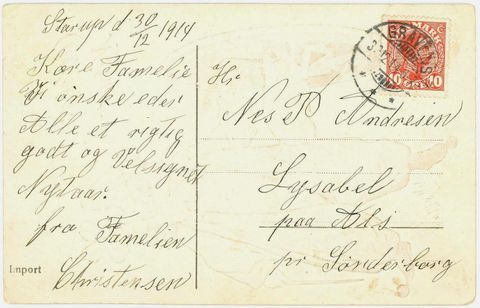 Starup d 30/12 1914
Kære Famelie
Vi ønske eder
Alle et rigtig
godt og Velsignet
Nytaar.
fra Famelien
Christensen
Import
Hr
Nes P Andresen
Lysabel
paa Als
pr Sönderborg
MARK
10 10